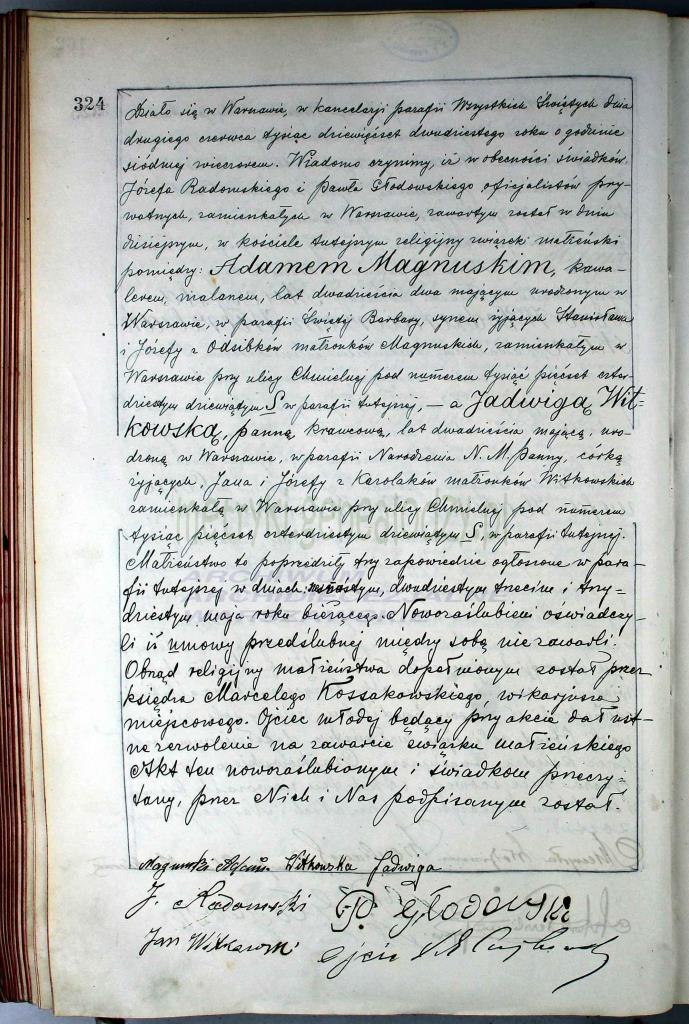 324
Działo się w Warszawie, w kancelarji parafii Wszystkich Świętych dnia
drugiego czerwca tysiąc dziewięćset dwudziestego roku o godzinie
siódmej wieczorem. Wiadomo czynimy, iż w obecności świadków
Józefa Radomskiego i Pawła Głodowskiego oficjalistów pry-
watnych, zamieszkałych w Warszawie, zawartym został w dniu
dzisiejszym, w kościele tutejszym religijny związek małżeński
pomiędzy: Adamem Magnuskim, kawa-
lerem, malarzem, lat dwadzieścia dwa mającym urodzonym w
Warszawie, w parafii Świętej Barbary, synem żyjących Stanisława
i Józefy z Odsibków małżonków Magnuskich, zamieszkałym w
Warszawie przy ulicy Chmielnej pod numerem tysiąc pięćset czter-
dziestym dziewiątym S w parafii tutejszej, — a Jadwigą Wit-
kowską, panną, krawcową, lat dwadzieścia mającą, uro-
dzoną w Warszawie, w parafii Narodzenia N. M. Panny, córką
żyjących, Jana i Józefy z Karolaków małżonków Witkowskich
zamieszkałą w Warszawie przy ulicy Chmielnej pod numerem
tysiąc pięćset czterdziestym dziewiątym S, w parafii tutejszej.
Małżeństwo to poprzedziły trzy zapowiedzie ogłoszone w para-
fii tutejszej w dniach: szesnastym, dwudziestym trzecim i trzy-
dziestym maja roku bieżącego. Nowozaślubieni oświadczy-
li iż umowy przedślubnej między sobą nie zawarli.
Obrząd religijny małżeństwa dopełnionym został przez
księdza Marcelego Kossakowskiego, wikarjusza
miejscowego. Ojciec młodej będący przy akcie dał ust-
ne zezwolenie na zawarcie związku małżeńskiego
Akt ten nowozaślubionym i świadkom przeczy-
tany, przez Nich i Nas podpisanym został.
Magnuski Adam Witkowska Jadwiga
J. Radomski P. Głodowski
Jan Witkowski